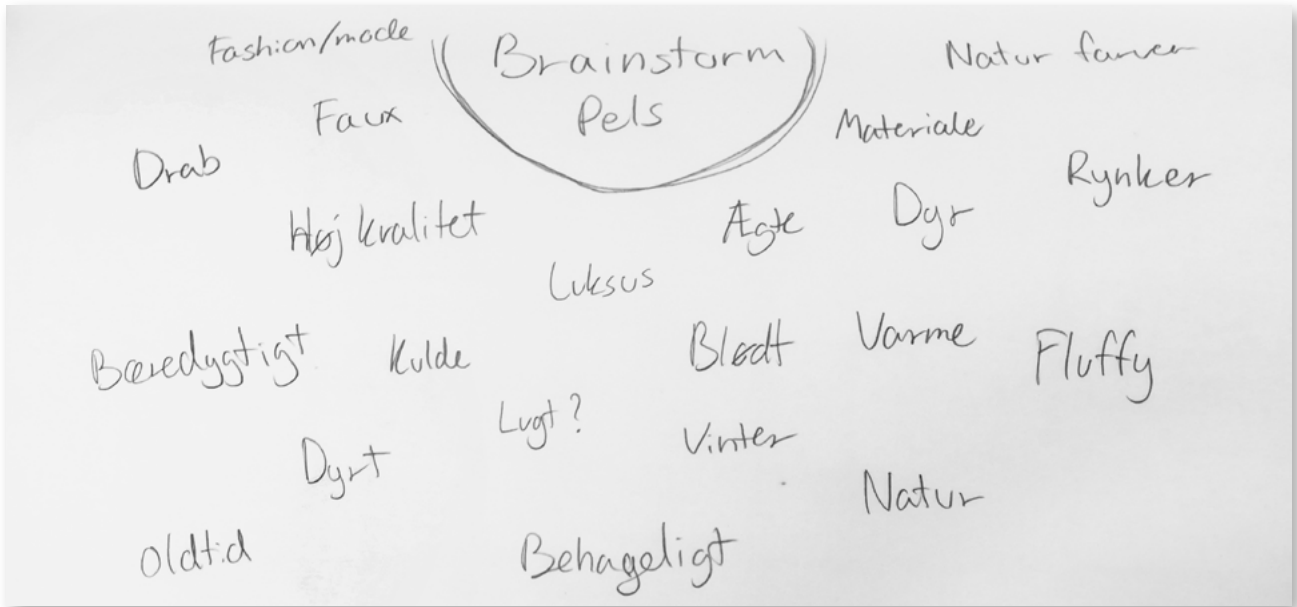 Fashion/mode
Brainstorm
Pels
Natur farver
Faux
Materiale
Drab
Rynker
Høj kvalitet
Ægte
Dyr
Luksus
Bæredygtigt
Kulde
Blødt
Varme
Fluffy
Lugt?
Vinter
Dyrt
Natur
Oldtid
Behageligt